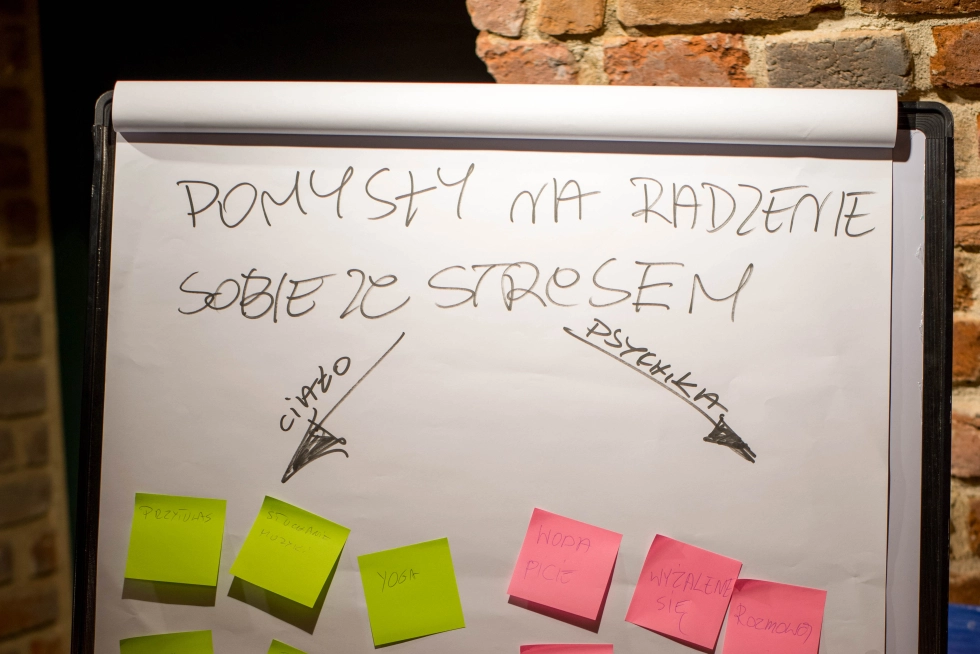 POMYSŁY NA RADZENIE
SOBIE ZE STRESEM
CIAŁO
PSYCHIKA
PRZYTULAS
SŁUCHANIE
MUZYKI
YOGA
WODA
PICIE
WYŻALENIE
SIĘ
ROZMOWA